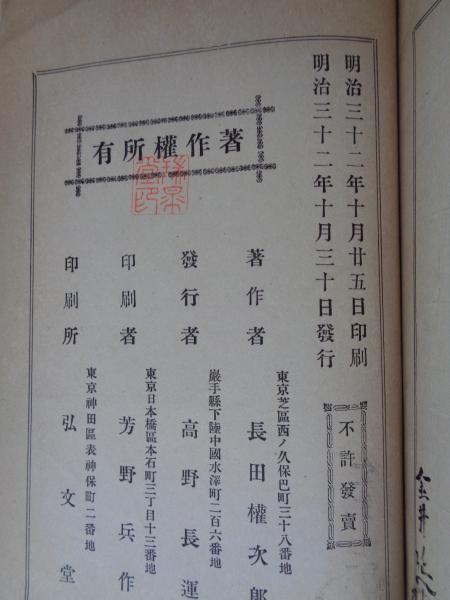 明治三十二年十月廿五日印刷
明治三十二年十月三十日發行
不許發賣
著作權所有
著作者
東京芝區西ノ久保巴町三十八番地
長田權次郎
發行者
巖手縣下陸中國水澤町二百六番地
高野長運
印刷者
東京日本橋區本石町三丁目十三番地
芳野兵作
印刷所
東京神田區表神保町二番地
弘文堂
金井